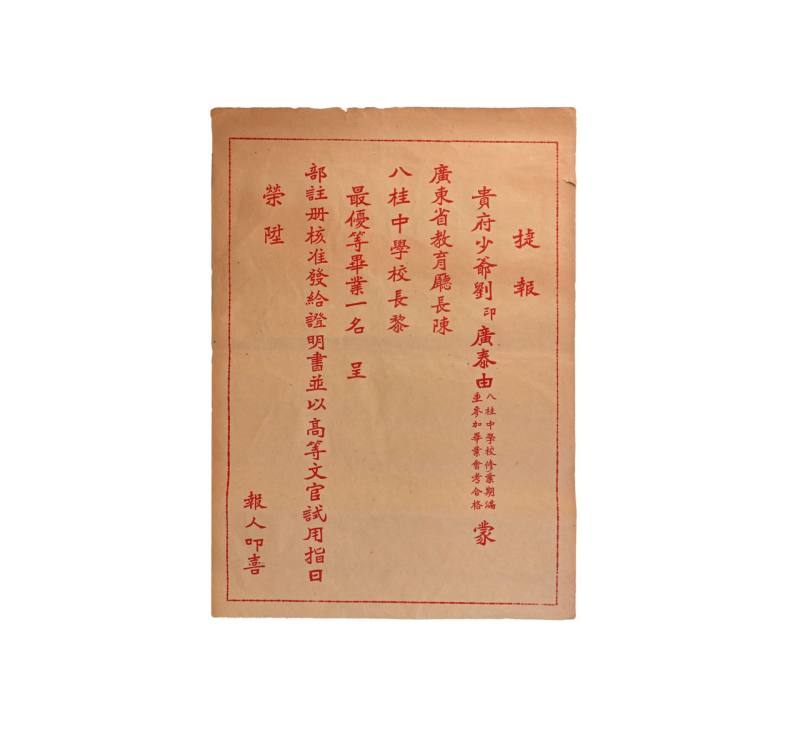 捷報
貴府少爺劉印廣泰由八桂中學校修業期滿並參加畢業會考合格蒙
廣東省教育廳長陳
八桂中學校長黎
最優等畢業一名 呈
部註册核准發給證明書並以高等文官試用指日
榮陞
報人叩喜